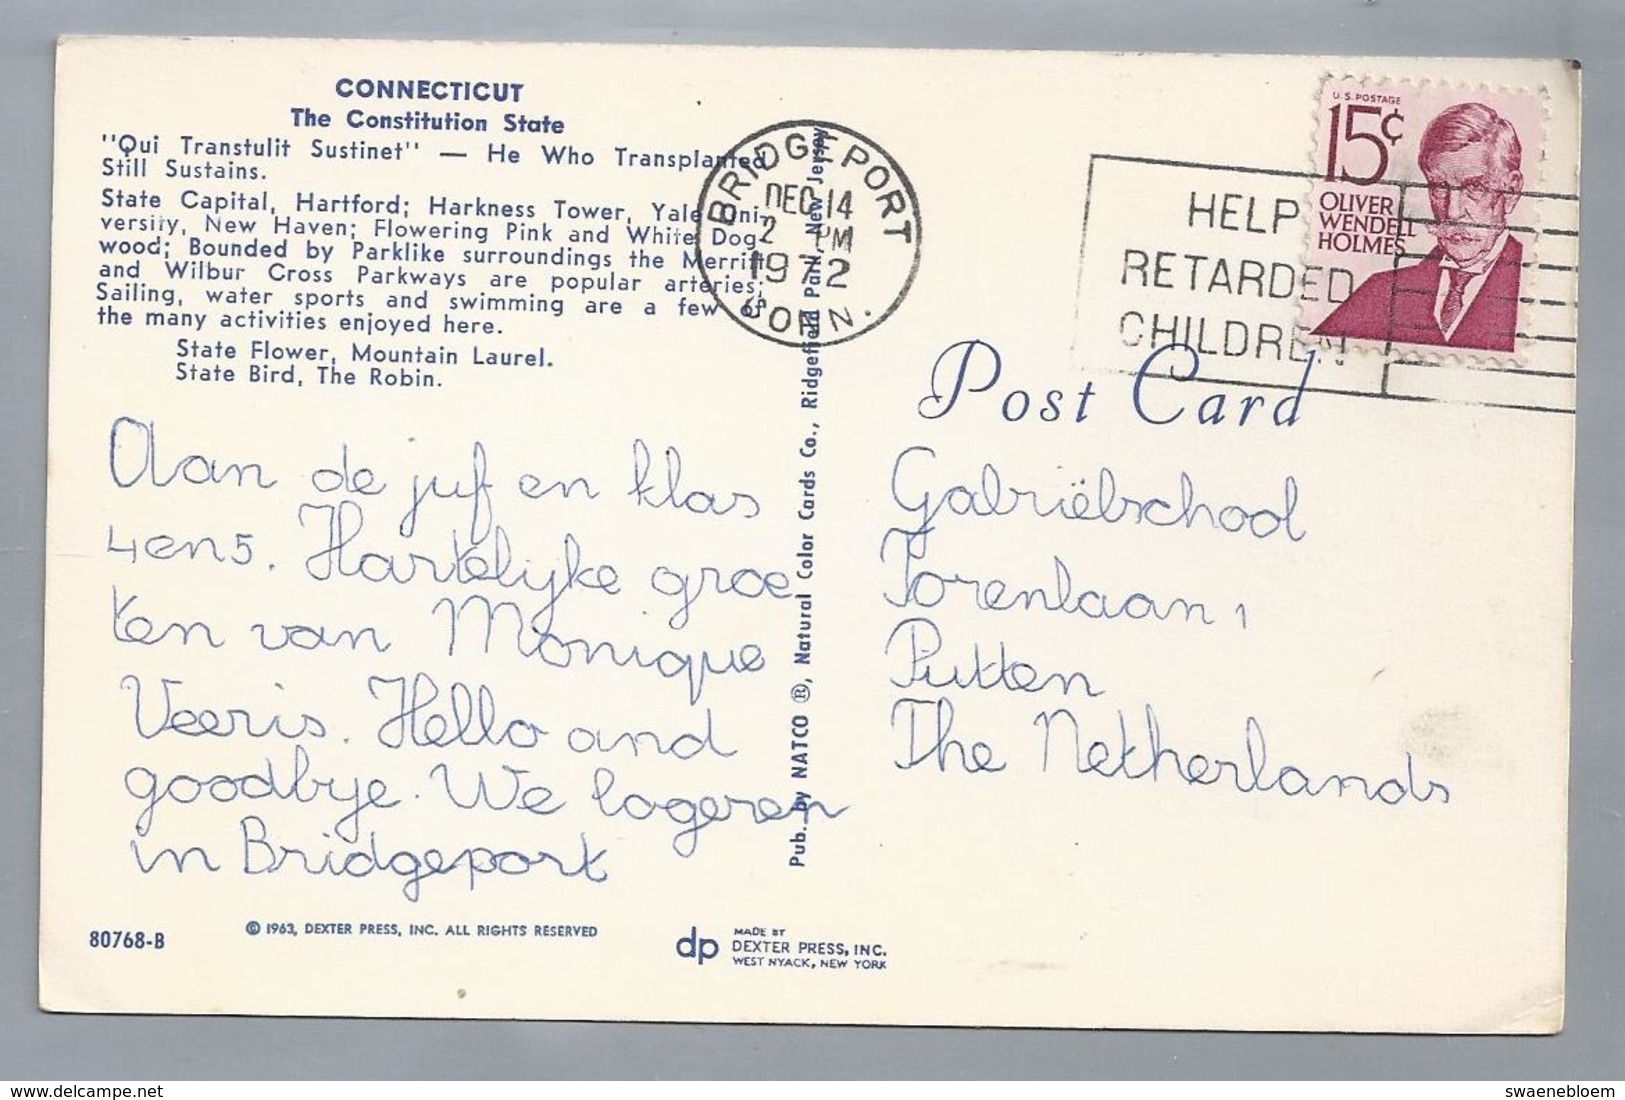 CONNECTICUT
The Constitution State
"Qui Transtulit Sustinet" — He Who Transplanted
Still Sustains.
State Capital, Hartford; Harkness Tower, Yale Uni-
versity, New Haven; Flowering Pink and White Dog-
wood; Bounded by Parklike surroundings the Merritt
and Wilbur Cross Parkways are popular arteries;
Sailing, water sports and swimming are a few of
the many activities enjoyed here.
State Flower, Mountain Laurel.
State Bird, The Robin.
Aan de juf en klas
4 en 5. Hartelijke groe
ten van Monique
Veeris. Hello and
goodbye. We logeren
in Bridgeport
80768-B
© 1963, DEXTER PRESS, INC. ALL RIGHTS RESERVED
dp
MADE BY
DEXTER PRESS, INC.
WEST NYACK, NEW YORK
Pub. by NATCO ®, Natural Color Cards Co., Ridgefield Park, New Jersey
BRIDGEPORT
DEC 14
2 PM
1972
CONN.
HELP
RETARDED
CHILDREN
U.S. POSTAGE
15¢
OLIVER
WENDELL
HOLMES
Post Card
Gabriëlschool
Torenlaan 1
Putten
The Netherlands
www.delcampe.net
swaenebloem